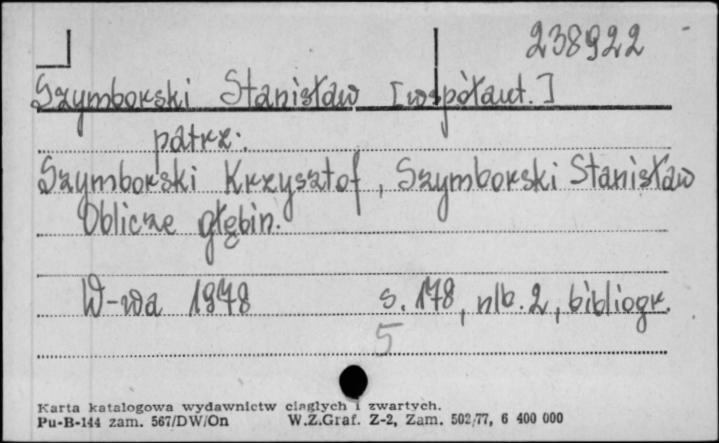 238922
Szymborski Stanisław [współaut.]
patrz:
Szymborski Krzysztof, Szymborski Stanisław
Oblicze głębin.
W-wa 1978 s. 178, nlb. 2, bibliogr.
5
Karta katalogowa wydawnictw ciągłych i zwartych.
Pu-B-144 zam. 567/DW/On W.Z.Graf. Z-2, Zam. 502/77, 6 400 000